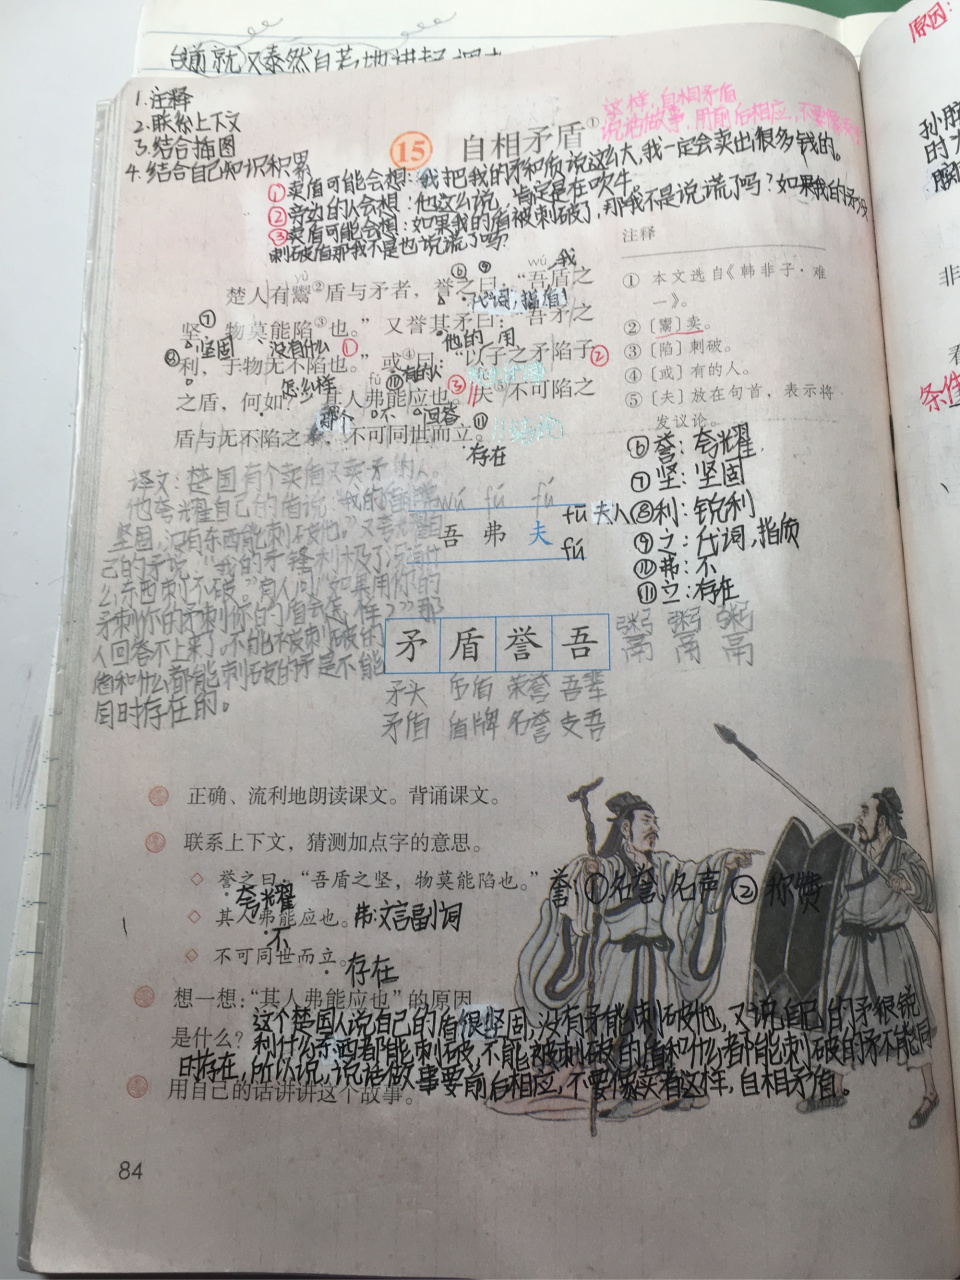 台前就又泰然自若地讲起课来
1.注释
2.联系上下文
3.结合插图
4.结合自己知识积累
15 自相矛盾①
这样,自相矛盾
说话做事,用前后相应,不要像
①卖盾可能会想:我把我的矛和盾说这么大,我一定会卖出很多钱的。
②旁边的人会想:他这么说,肯定是在吹牛。
③卖盾可能会想:如果我的盾被刺破了,那我不是说谎了吗?如果我的矛没
刺破盾那我不是也说谎了吗?
原因:
条件
yù
wú 我
⑥ ⑨
楚人有鬻②盾与矛者,誉之曰:“吾盾之
⑦ 代词,指盾
坚,物莫能陷③也。”又誉其矛曰:“吾矛之
⑧ 坚固 没有什么 ① 他的 用
利,于物无不陷也。”或④曰:“以子之矛陷子
②
怎么样 fú ⑩ 有的人 ③ fú
之盾,何如?”其人弗能应也。夫⑤不可陷之
那个 不 回答 ⑪
盾与无不陷之矛,不可同世而立。
存在
注释
① 本文选自《韩非子·难
一》。
② 〔鬻〕卖。
③ 〔陷〕刺破。
④ 〔或〕有的人。
⑤ 〔夫〕放在句首,表示将
发议论。
⑥誉:夸耀
⑦坚:坚固
⑧利:锐利
⑨之:代词,指质
⑩弗:不
⑪立:存在
译文:楚国有个卖盾又卖矛的人。
他夸耀自己的盾说:“我的盾非常
坚固,没有东西能刺破他。”又夸耀自
己的矛说:“我的矛锋利极了,没有什
么东西刺不破。”有人问:“如果用你的
矛刺你的矛刺你的盾会怎样?”那
人回答不上来了。不能被刺破的
盾和什么都能刺破的矛是不能
同时存在的。
wú fú fú
吾 弗 夫
fū 夫人
fú
矛 盾 誉 吾
粥 粥 粥
鬲 鬲 鬲
矛头 后盾 荣誉 吾辈
矛盾 盾牌 名誉 支吾
正确、流利地朗读课文。背诵课文。
联系上下文,猜测加点字的意思。
誉之曰:“吾盾之坚,物莫能陷也。”
夸耀
誉 ①名誉、名声 ②称赞
其人弗能应也。
弗:文言副词
不
不可同世而立。
存在
想一想:“其人弗能应也”的原因
是什么?
这个楚国人说自己的盾很坚固,没有矛能刺破他,又说自己的矛很锐
利什么东西都能刺破,不能被刺破的盾和什么都能刺破的矛不能同
时存在,所以说,说话做事要前后相应,不要像卖者这样,自相矛盾。
用自己的话讲讲这个故事。
84